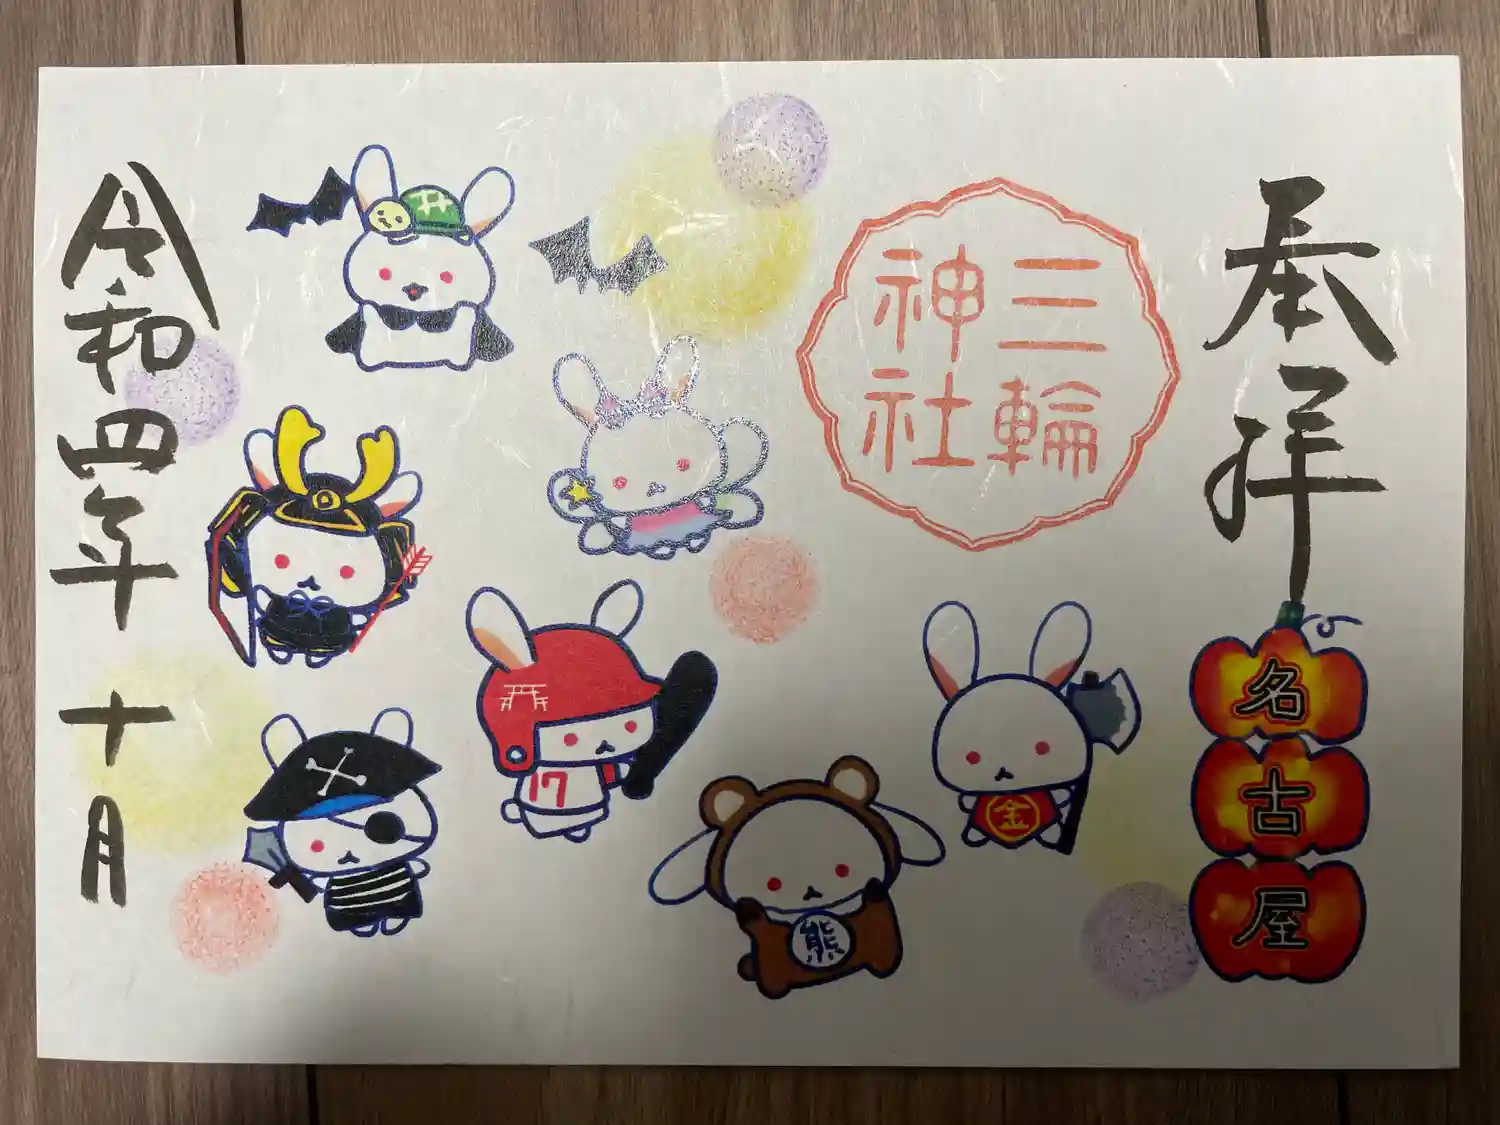 奉拝
名古屋
三輪
神社
金
熊
17
令和四年十月